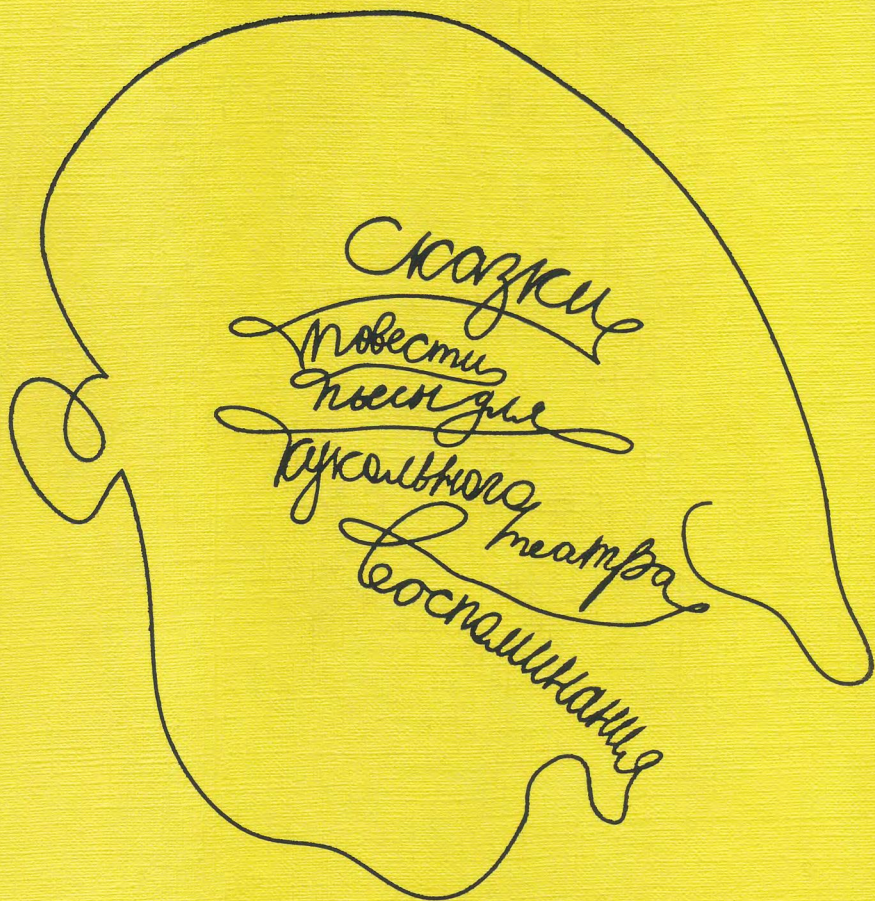 Сказки
повести
пьесы для
кукольного театра
воспоминания